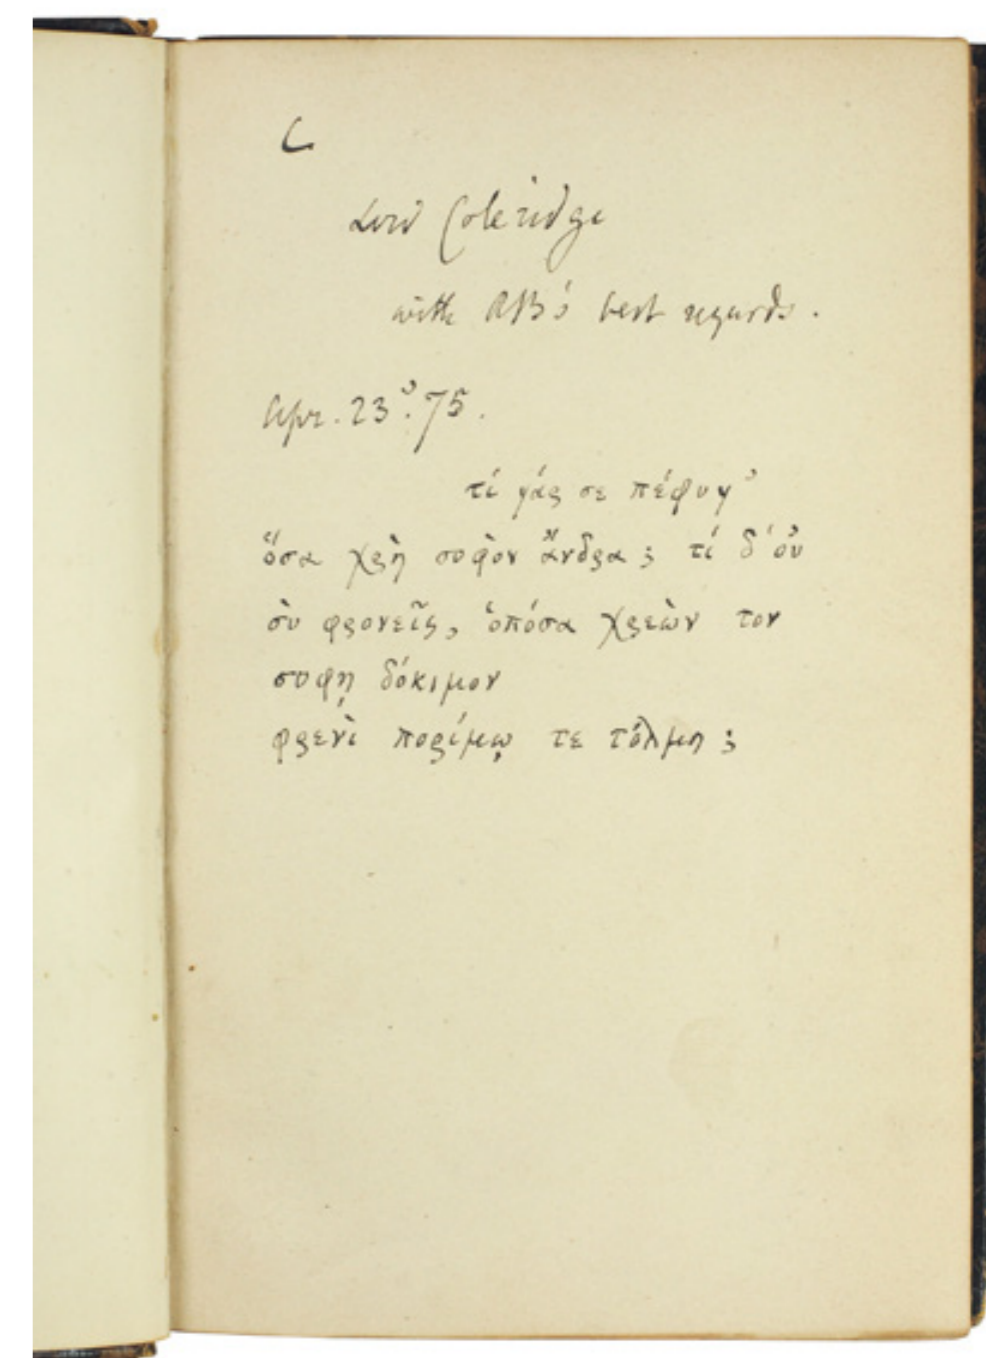 C
Lord Coleridge
with RB's best regards.
Apr. 23. 75.
τί γάρ σε πέφυγ'
ὅσα χρὴ σοφὸν ἄνδρα; τί δ' οὐ
σὺ φρονεῖς, ὁπόσα χρεὼν τον
σοφῃ δόκιμον
φρενὶ πορίμῳ τε τόλμη;